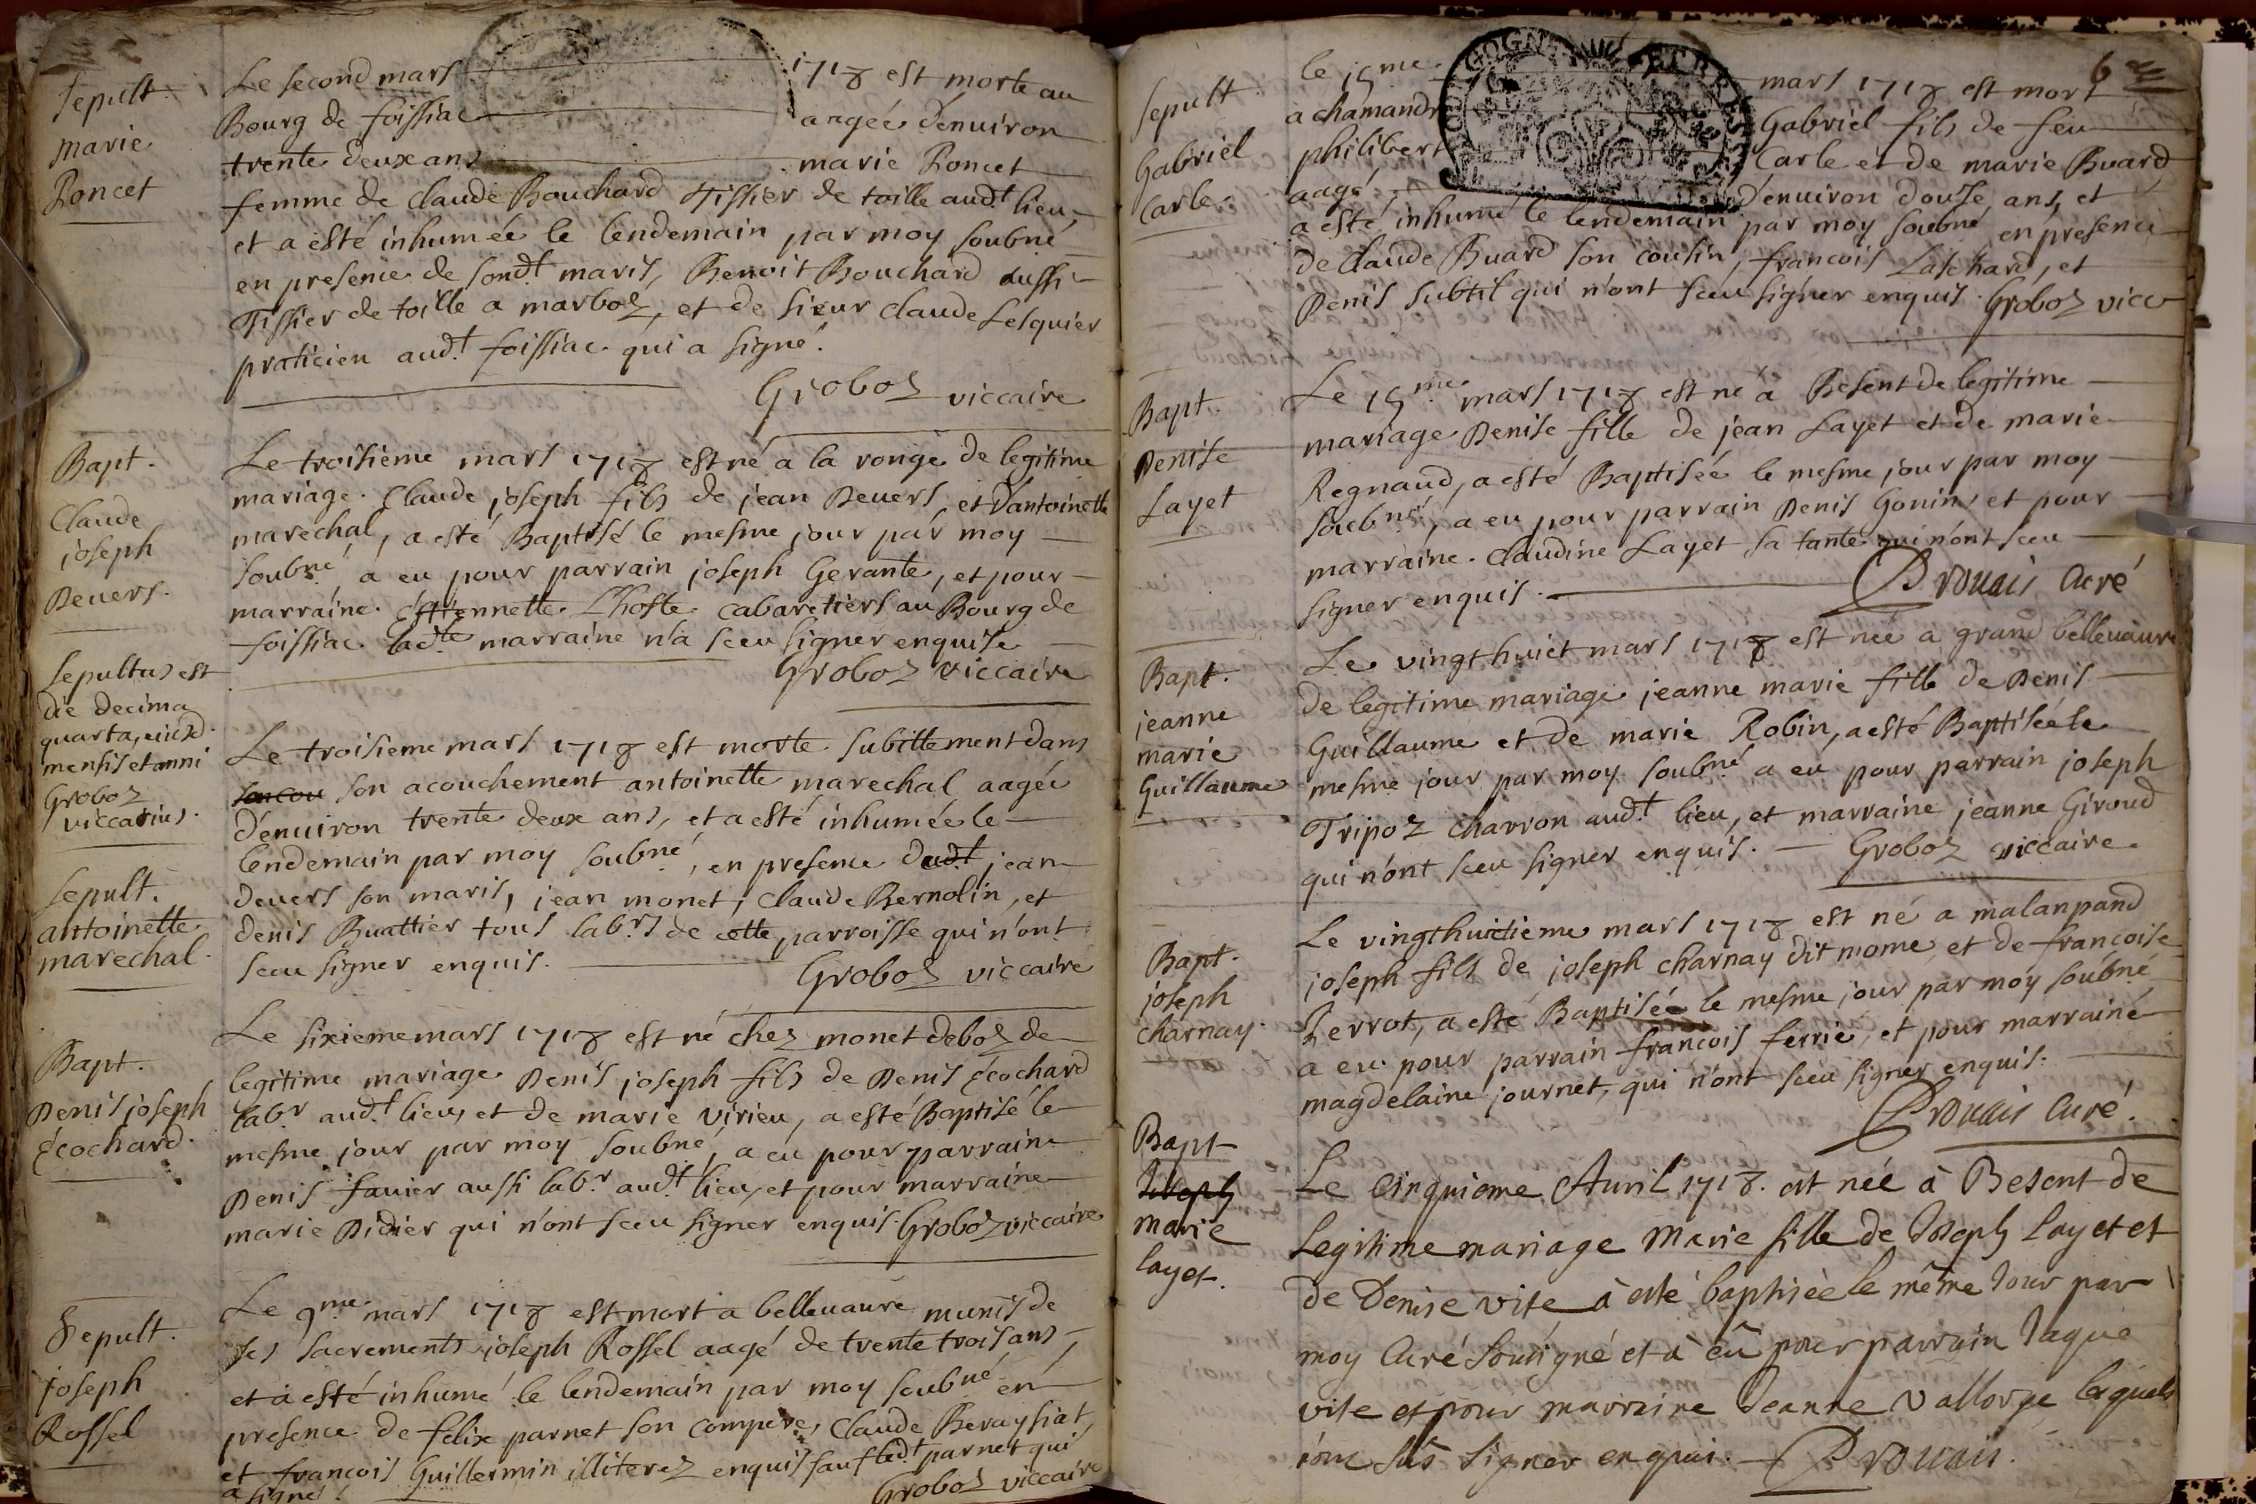 Sepult.
marie
Poncet
Le second mars 1718 est morte au
Bourg de foissiac aagée d'enuiron
trente deux ans marie Poncet
femme de Claude Bouchard Tissier de toille aud.t lieu,
et a esté inhumée le lendemain par moy soubné
en presence de sond.t maris, Benoit Bouchard aussi
Tissier de toille a marboz, et de sieur Claude Lesquier
praticien aud.t foissiac qui a signé.
Groboz viccaire
Bapt.
Claude
joseph
Deuers.
Le troisieme mars 1718 est né a la rongé de legitime
mariage. Claude joseph fils de jean Deuers et d'antoinette
marechal, a esté Baptisé le mesme jour par moy
soubné, a eu pour parrain joseph Gerante, et pour
marraine. éstiennette. L'hoste. cabaretiers au Bourg de
foissiac lad.te marraine n'a sceu signer enquise
Groboz viccaire
Sepultus est
die decima
quarta, eiusd.
mensis et anni
Groboz
viccarius.
Sepult.
antoinette
marechal.
Le troisieme mars 1718 est morte subittement dans
son acouchement antoinette marechal aagée
d'enuiron trente deux ans, et a esté inhumée le
lendemain par moy soubné, en presence dud.t jean
deuers son maris, jean monet, Claude Bernolin, et
denis Buattier tous lab.rs de cette parroisse qui n'ont
sceu signer enquis.
Groboz viccaire
Bapt.
Denis joseph
écochard.
Le sixieme mars 1718 est né chez monet deboz de
legitime mariage Denis joseph fils de Denis écochard
lab.r aud.t lieu, et de marie virieu, a esté Baptisé le
mesme jour par moy soubné, a eu pour parrain
Denis fauier aussi lab.r aud.t lieu, et pour marraine
marie Didier qui n'ont sceu signer enquis. Groboz viccaire
Sepult.
joseph
Rossel
Le 9.me mars 1718 est mort a belleuaure munis de
ses sacrements joseph Rossel aagé de trente trois ans,
et a esté inhumé le lendemain par moy soubné en
presence de felix parnet son compere, Claude Beraysiat,
et francois Guillermin illiterez enquis sauf led.t parnet qui
a signé.
Groboz viccaire
6
Sepult
Gabriel
Carle.
le 15.me mars 1718 est mort
a chamandr Gabriel fils de feu
philibert Carle et de marie Buard
aagé d'enuiron douse ans, et
a esté inhumé le lendemain par moy soubné en presence
de Claude Buard son cousin, francois Laschard, et
Denis subtil qui n'ont sceu signer enquis. Groboz vicc
Bapt.
Denise
Layet
Le 15.me mars 1718 est né a Besent de legitime
mariage Denise fille de jean Layet et de marie
Regnaud, a esté Baptisée le mesme jour par moy
soubné, a eu pour parrain Denis Gonin, et pour
marraine. Claudine Layet sa tante qui n'ont sceu
signer enquis.
Drouais Curé
Bapt.
jeanne
marie
Guillaume
Le vingt huict mars 1718 est née a grand belleuaure
de legitime mariage jeanne marie fille de Denis
Guillaume et de marie Robin, a esté Baptisée le
mesme jour par moy soubné a eu pour parrain joseph
Tripoz charron aud.t lieu, et marraine jeanne Giroud
qui n'ont sceu signer enquis. Groboz viccaire.
Bapt.
joseph
charnay.
Le vingt huictieme mars 1718 est né a malanpand
joseph fils de joseph charnay dit mome et de francoise
Perrot, a esté Baptisée le mesme jour par moy soubné
a eu pour parrain francois ferrie, et pour marraine
magdelaine journet, qui n'ont sceu signer enquis.
Drouais Curé.
Bapt
Joseph
Marie
layet.
Le Cinquieme Auril 1718. est née à Besent de
Legitime mariage Marie fille de Joseph Layet et
de Denise vite à esté baptisée le même Jour par
moy Curé Sousigné et à eû pour parrain Jaque
vite et pour marraine Jeanne Vallorge lesquels
n'ont sûs signer enquis. Drouais.